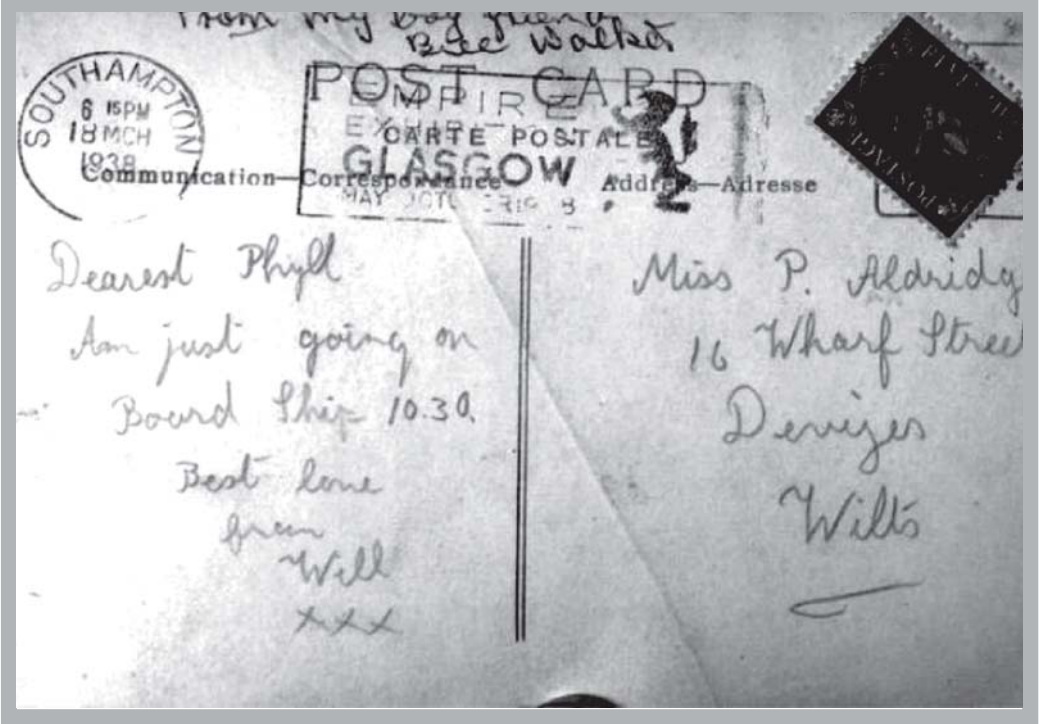 From my boy friend
Bill Walker
SOUTHAMPTON
6 15PM
18 MCH
1938
POST CARD
EMPIRE
CARTE POSTALE
GLASGOW
MAY
Communication—Correspondance
Address—Adresse
Dearest Phyll
Am just going on
Board Ship 10.30.
Best love
from
Will
xxx
Miss P. Aldridg
16 Wharf Street
Devizes
Wilts